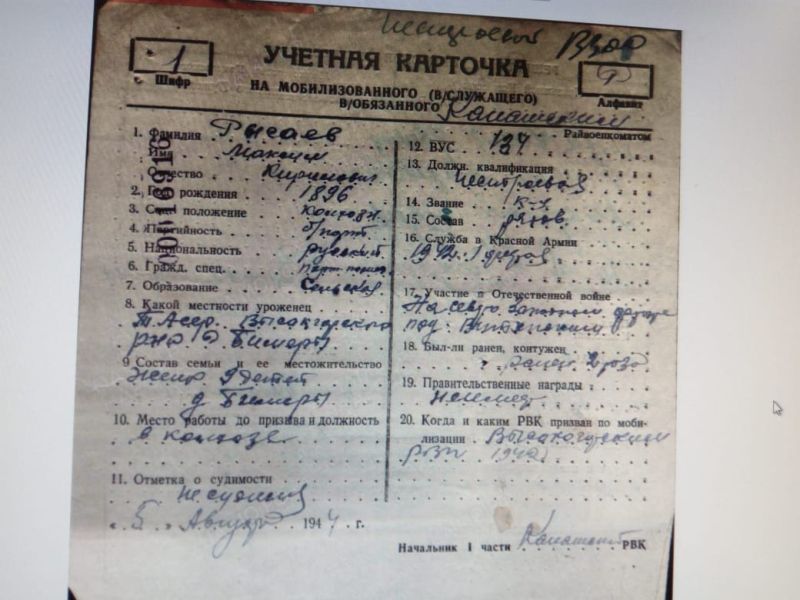 1
Шифр
УЧЕТНАЯ КАРТОЧКА
НА МОБИЛИЗОВАННОГО (В/СЛУЖАЩЕГО)
В/ОБЯЗАННОГО
Р
Алфавит
Райвоенкоматом
1. Фамилия Рысаев
Имя Максим
Отчество Кириллович
2. Год рождения 1896
3. Соц. положение колхозн.
4. Партийность б/парт
5. Национальность русский
6. Гражд. спец.
7. Образование сельская
8. Какой местности уроженец
ТАССР Высокогорского
р-на д.
9 Состав семьи и ее местожительство
жена 9 детей
д.
10. Место работы до призыва и должность
в колхозе
11. Отметка о судимости
не судился
5 Август 1944 г.
12. ВУС 137
13. Должн. квалификация
нестроевая
14. Звание к-ц
15. Состав рядов.
16. Служба в Красной Армии
1942
17. Участие в Отечественной войне
На северо западном фронте
под
18. Был-ли ранен, контужен
ранен 2 раза
19. Правительственные награды
не имеет
20. Когда и каким РВК призван по моби-
лизации Высокогорским
РВК 1942
Начальник 1 части РВК